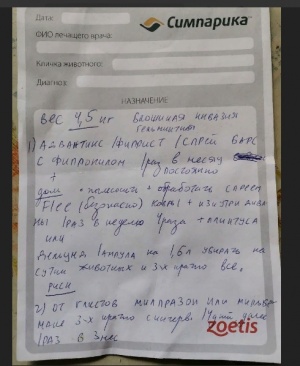 Дата:
Симпарика™
ФИО лечащего врача:
Кличка животного:
Диагноз:
НАЗНАЧЕНИЕ
вес 4,5 кг Блошиная инвазия
гельминтозы
1) Адвантикс / фиприст / спрей Барс
с фипронилом 1 раз в месяц
+
дом - пылесосить + обработать спреем
Flee (безопасно) ковры + изнутри дива
ны 1 раз в неделю 4 раза + плинтуса
или
Делцид 1 ампула на 1,6л убирать на
сутки животных и 3-х кратно все,
риски
2) От глистов милпразон или мильбе
макс 3-х кратно с интерв.
1 раз в 3 мес
zoetis